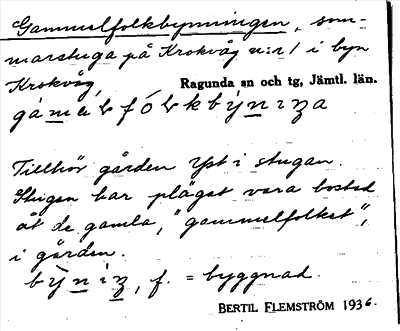 Gammelfolkbynningen, som-
marstuga på Krokvåg n:r 1 i byn
Krokvåg, Ragunda sn och tg, Jämtl. län.
gámel fólkbýniza
Tillhör gården Yst i stugan.
Stugan har plägat vara bostad
åt de gamla, "gammelfolket",
i gården.
býniz, f. = byggnad.
BERTIL FLEMSTRÖM 1936.